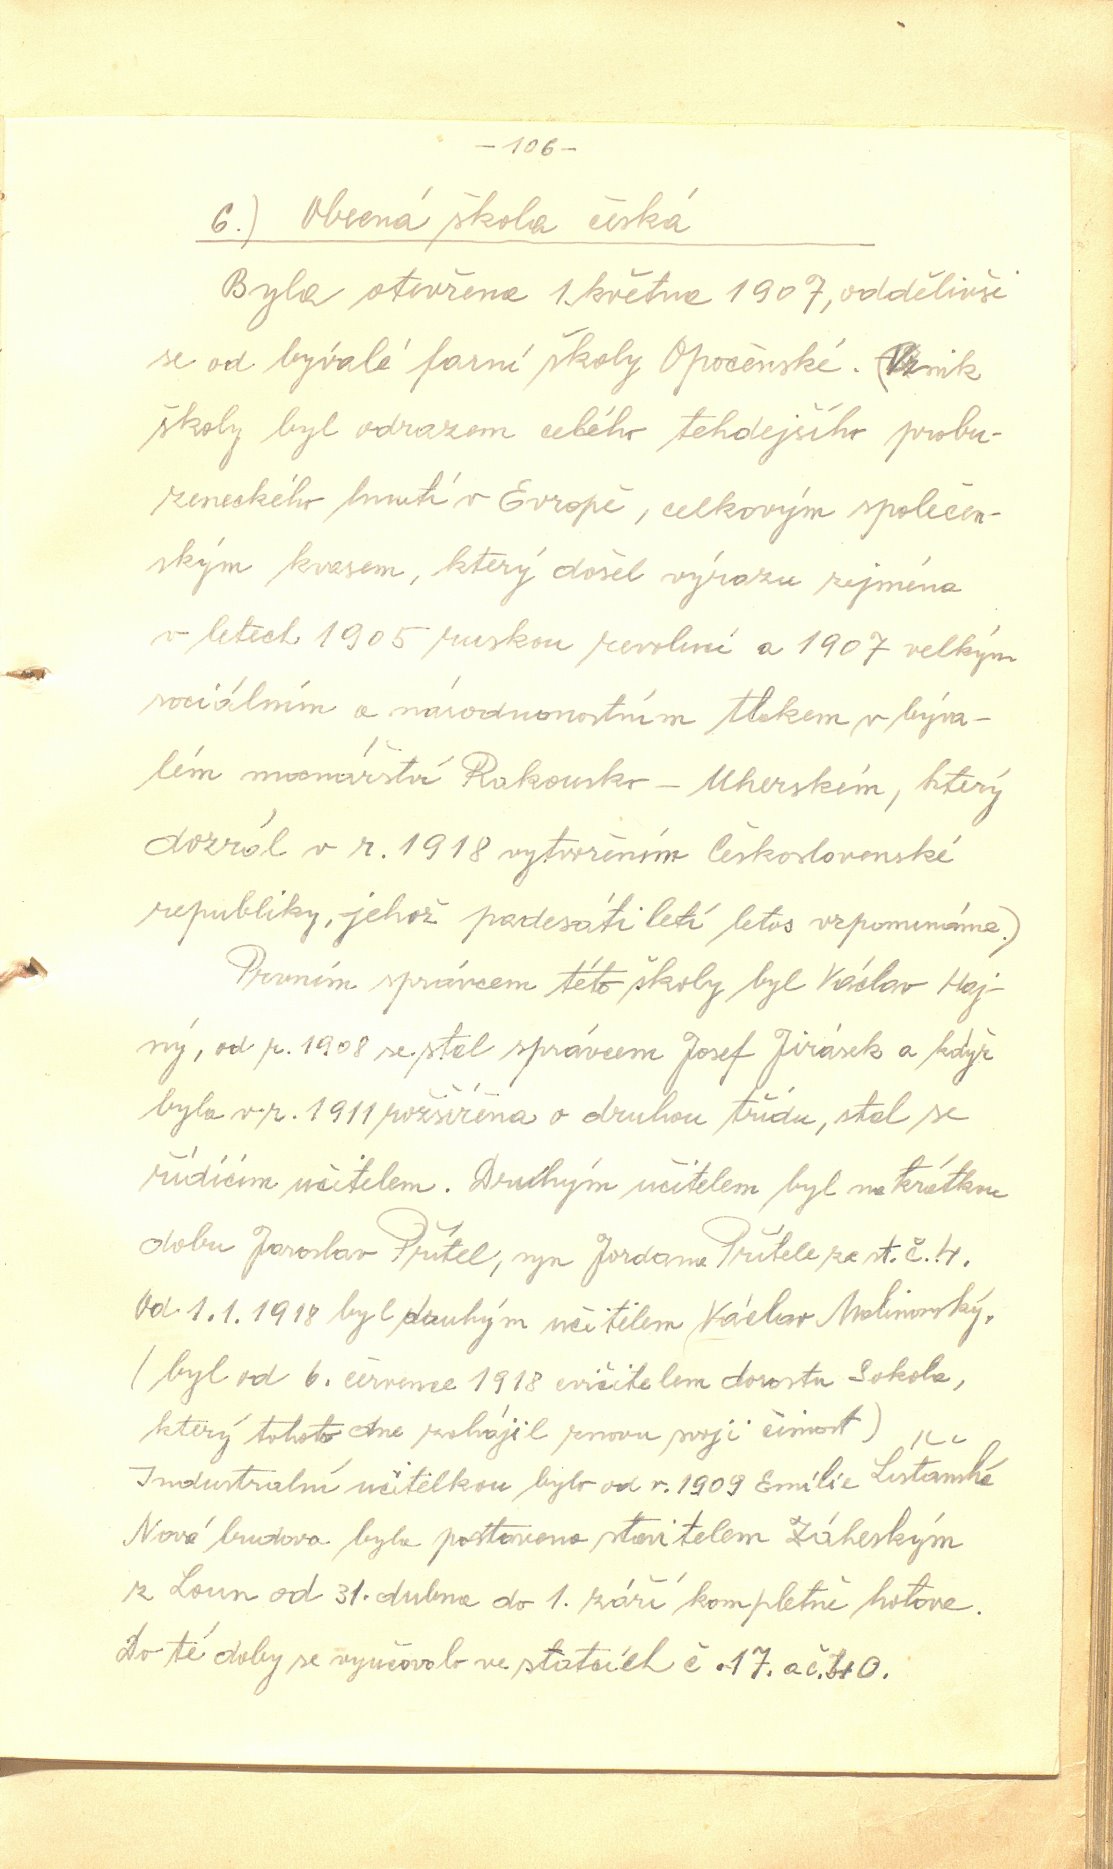 - 106 -
6.) Obecná škola česká
Byla otevřena 1. května 1907, oddělivši
se od bývalé farní školy Opočenské. (Vznik
školy byl odrazem celého tehdejšího probu-
zeneckého hnutí v Evropě, celkovým společen-
ským kvasem, který došel výrazu zejména
v letech 1905 ruskou revolucí a 1907 velkým
sociálním a národnonostním tlakem v býva-
lém mocnářství Rakousko - Uherském, který
dozrál v r. 1918 vytvořením Československé
republiky, jehož padesátiletí letos vzpomínáme.)
Prvním správcem této školy byl Václav Haj-
ný, od r. 1908 se stal správcem Josef Jirásek a když
byla v r. 1911 rozšířena o druhou třídu, stal se
řídícím učitelem. Druhým učitelem byl na krátkou
dobu Jaroslav Přítel, syn Jordana Přítele ze st. č. 4.
Od 1. 1. 1918 byl druhým učitelem Václav Malinovský.
( byl od 6. července 1918 cvičitelem dorostu Sokola,
který tohoto dne zahájil znovu svoji činost )
Industrialní učitelkou bylo od r. 1909 Emílie Lišťanská
Nová budova byla postavena stavitelem Záheským
z Loun od 31. dubna do 1. září kompletně hotova.
Do té doby se vyučovalo ve statcích č. 17. a č. 40.